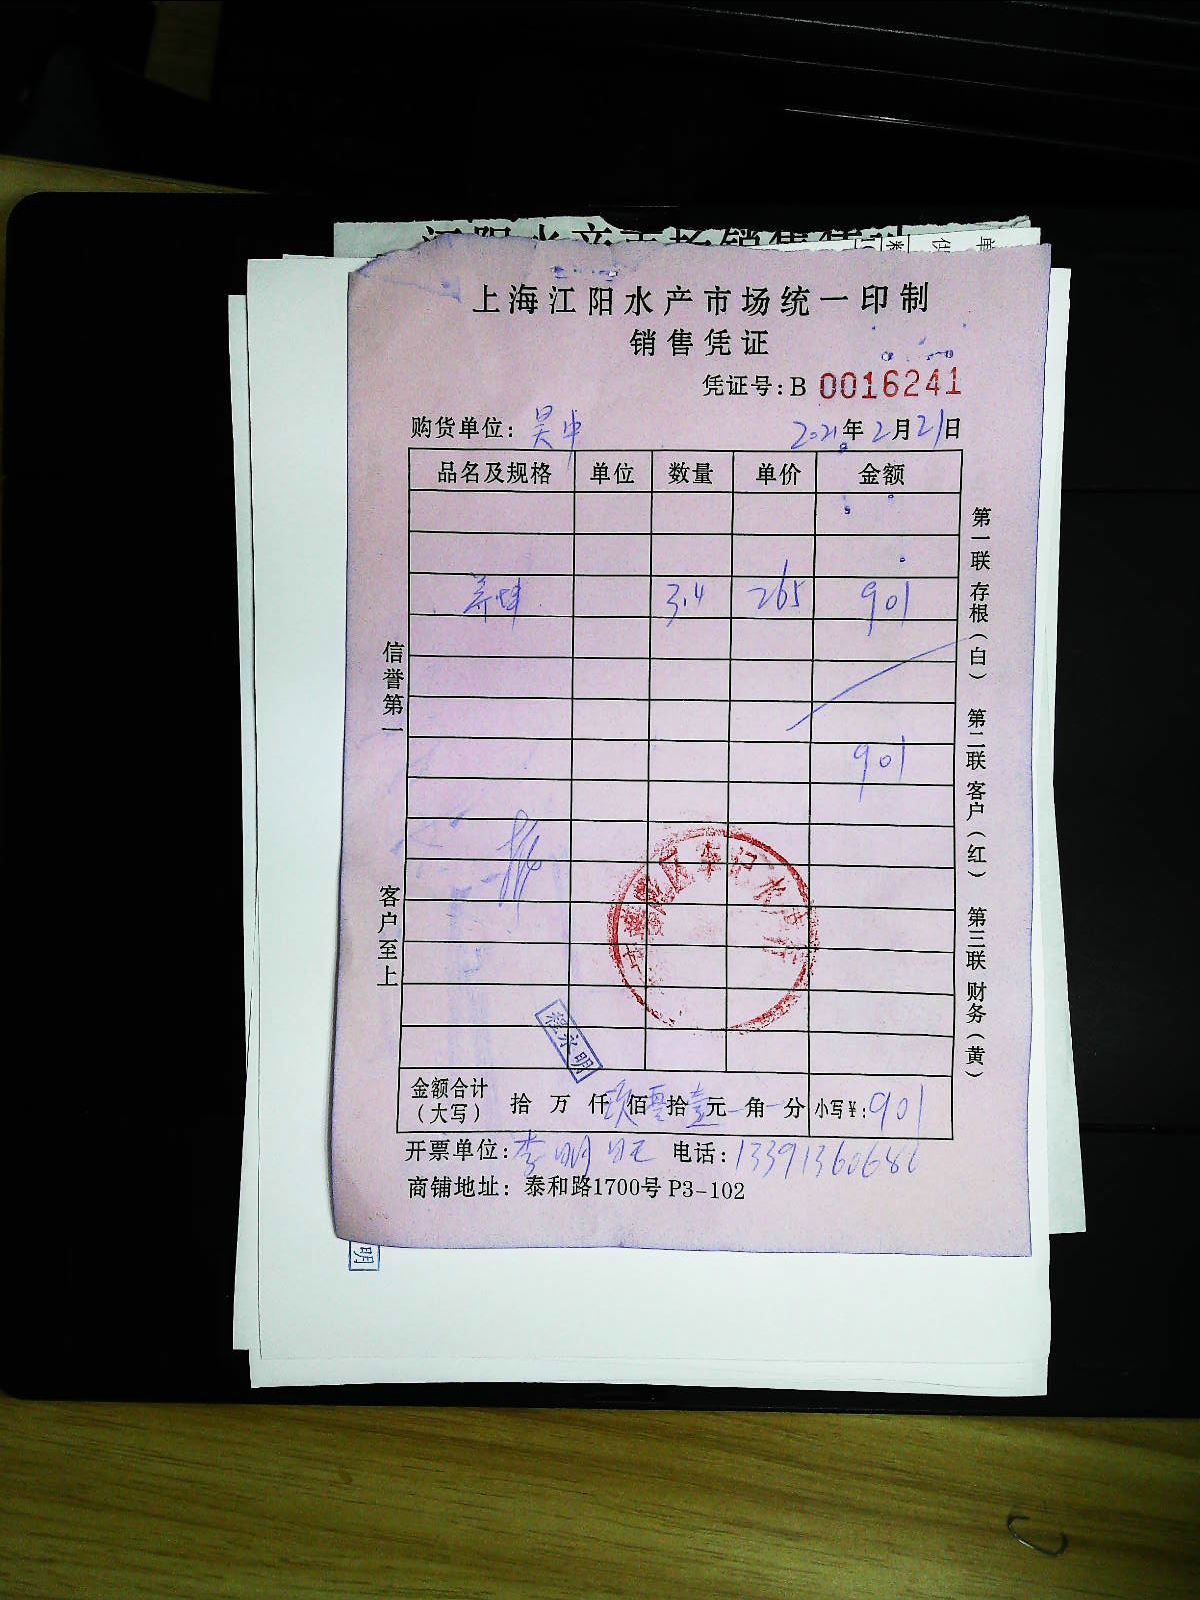 上海江阳水产市场统一印制
销售凭证
凭证号:B 0016241
购货单位: 吴中 2021年2月21日
品名及规格 单位 数量 单价 金额
3.4 265 901
901
金额合计(大写) 拾 万 仟 玖佰零拾壹元 角 分 小写¥:901
开票单位:李明旺 电话:13391360686
商铺地址: 泰和路1700号 P3-102
信誉第一
客户至上
第一联 存根(白) 第二联 客户(红) 第三联 财务(黄)
程永明
明